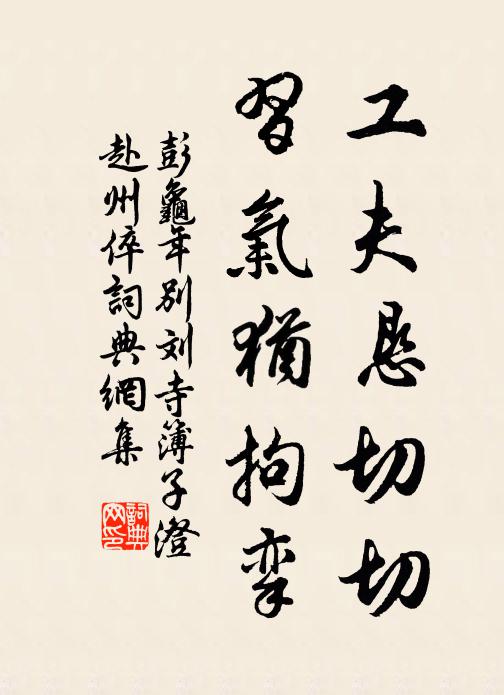 工夫恳切切
習氣猶拘挛
彭龜年別刘寺簿子澄
赴州倅詞典網集
詞典
网印